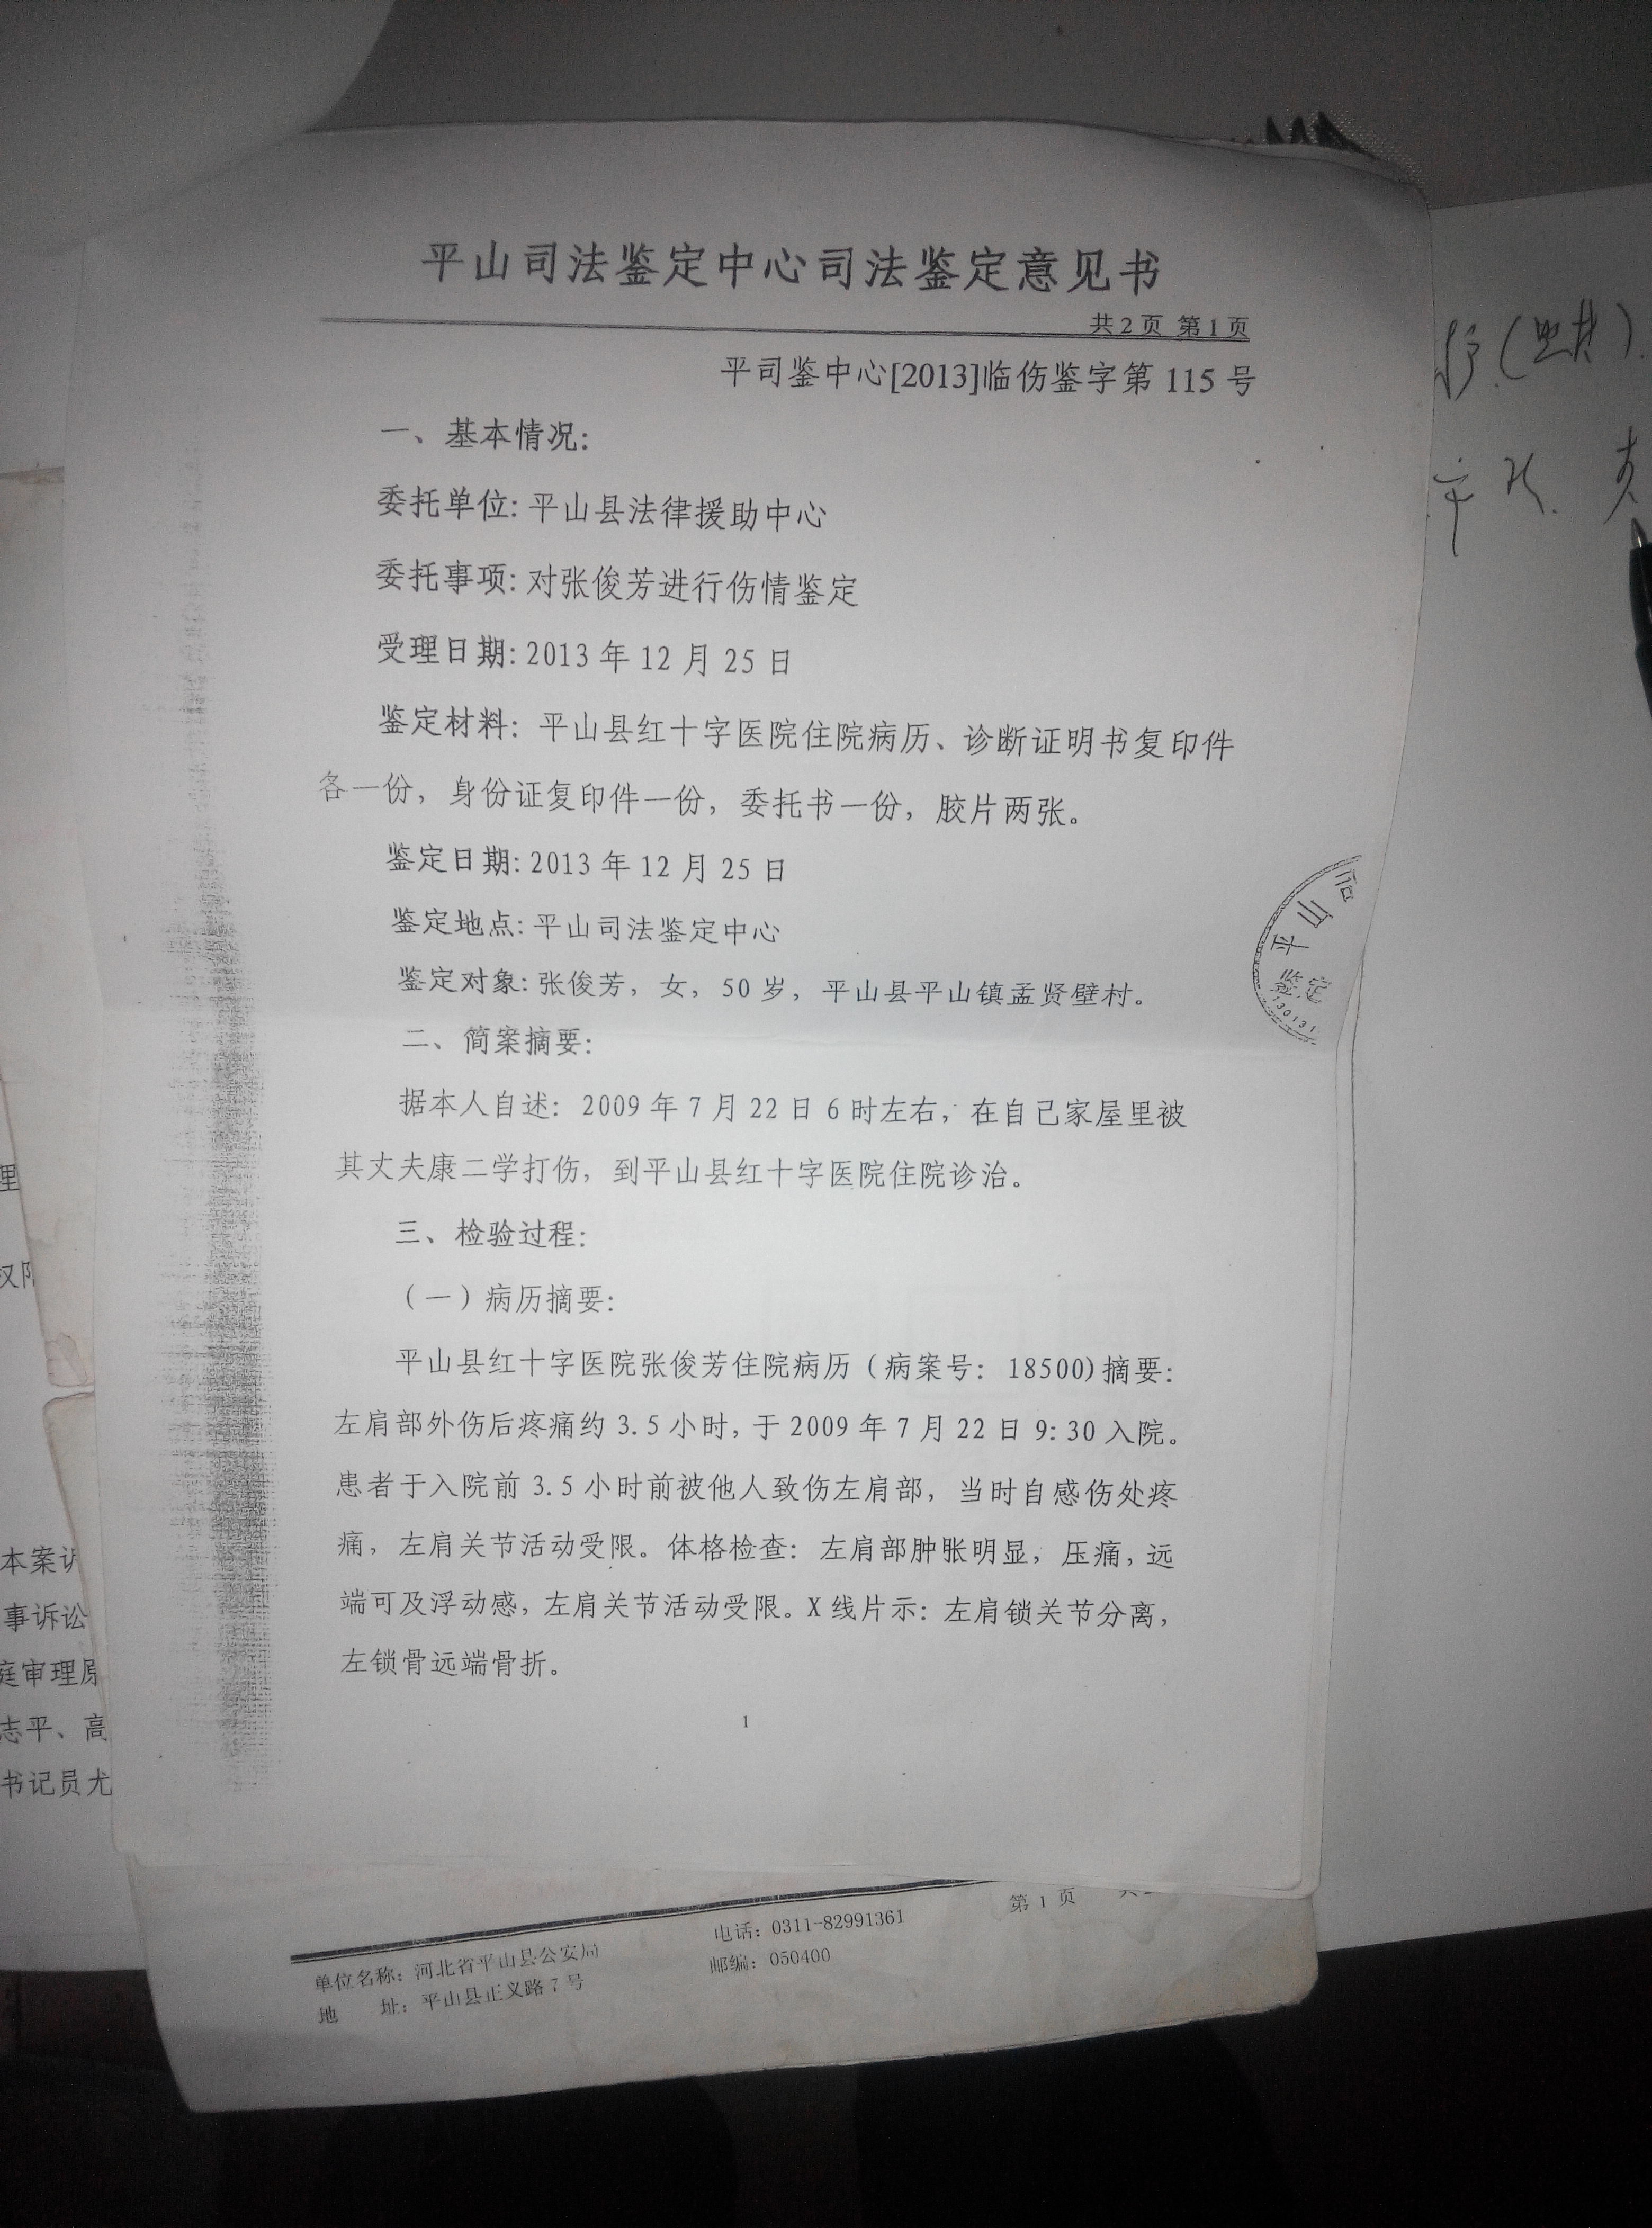 平山司法鉴定中心司法鉴定意见书
共2页 第1页
平司鉴中心[2013]临伤鉴字第 115 号
一、基本情况:
委托单位: 平山县法律援助中心
委托事项: 对张俊芳进行伤情鉴定
受理日期: 2013 年 12 月 25 日
鉴定材料: 平山县红十字医院住院病历、诊断证明书复印件
各一份, 身份证复印件一份, 委托书一份, 胶片两张。
鉴定日期: 2013 年 12 月 25 日
鉴定地点: 平山司法鉴定中心
鉴定对象: 张俊芳, 女, 50 岁, 平山县平山镇孟贤壁村。
二、简案摘要:
据本人自述: 2009 年 7 月 22 日 6 时左右, 在自己家屋里被
其丈夫康二学打伤, 到平山县红十字医院住院诊治。
三、检验过程:
(一) 病历摘要:
平山县红十字医院张俊芳住院病历 (病案号: 18500) 摘要:
左肩部外伤后疼痛约 3.5 小时, 于 2009 年 7 月 22 日 9:30 入院。
患者于入院前 3.5 小时前被他人致伤左肩部, 当时自感伤处疼
痛, 左肩关节活动受限。体格检查: 左肩部肿张明显, 压痛, 远
端可及浮动感, 左肩关节活动受限。X 线片示: 左肩锁关节分离,
左锁骨远端骨折。
1
平山
鉴定
130131
理
本案诉
事诉讼
庭审理原
志平、高
书记员尤
第 1 页
单位名称: 河北省平山县公安局
电话: 0311-82991361
地 址: 平山县正义路 7 号
邮编: 050400